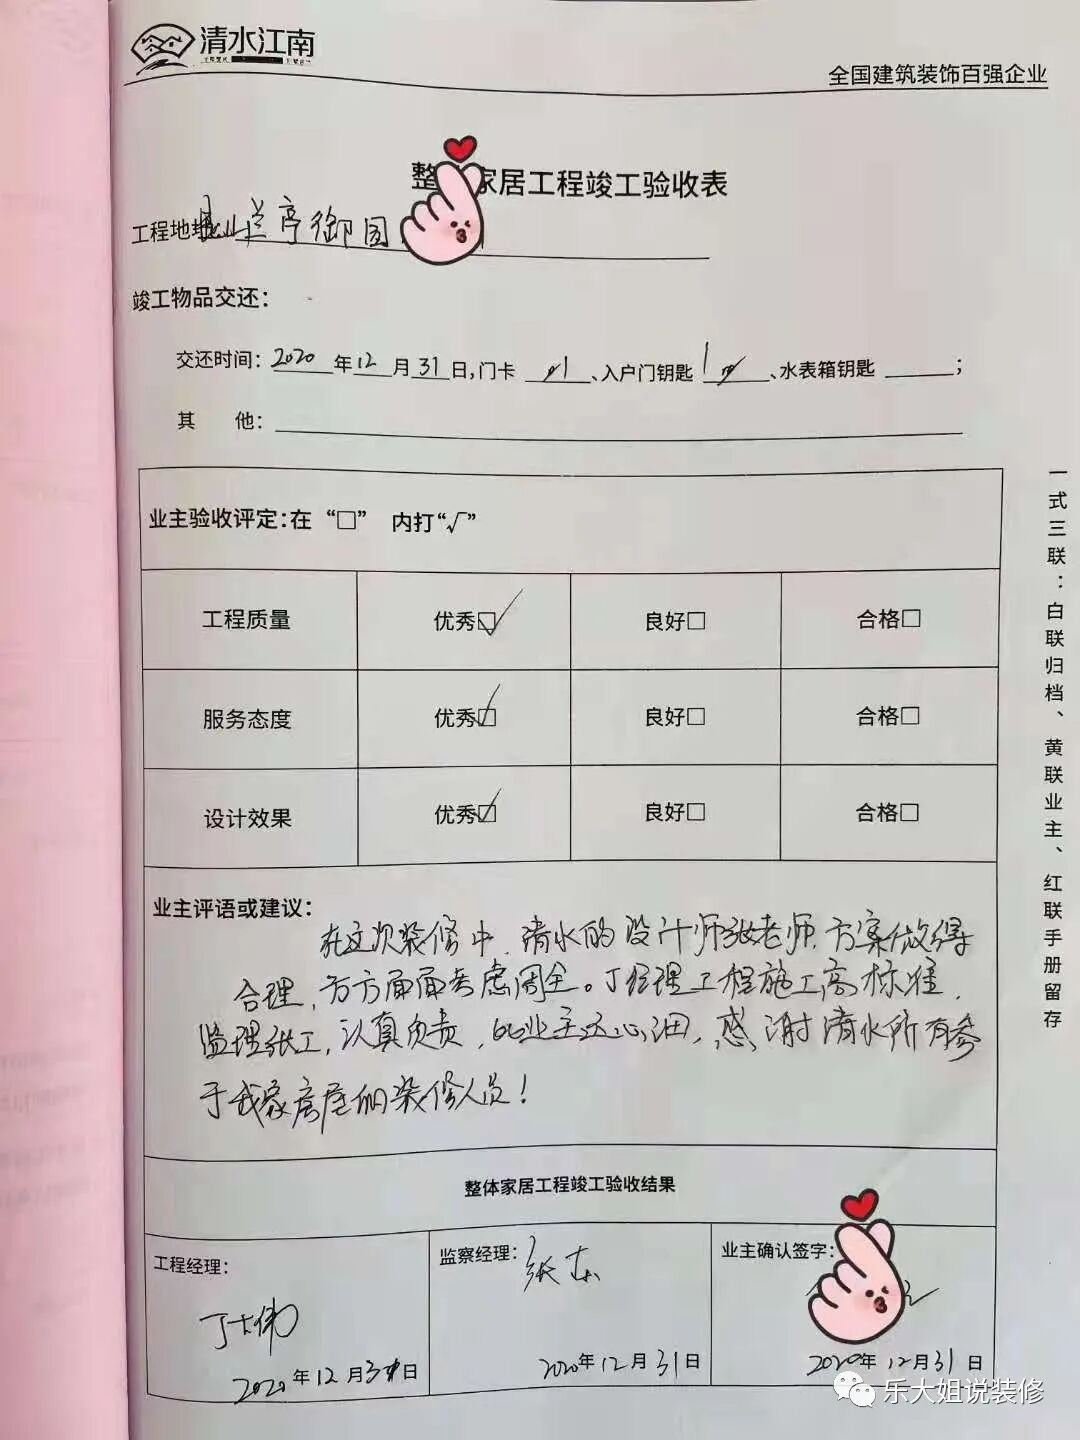 清水江南
全国建筑装饰百强企业
整 家居工程竣工验收表
工程地址 兰亭御园
竣工物品交还：
交还时间：2020年12月31日,门卡 1、入户门钥匙 1、水表箱钥匙 ；
其 他：
业主验收评定：在“□” 内打“√”
工程质量 优秀☑ 良好□ 合格□
服务态度 优秀☑ 良好□ 合格□
设计效果 优秀☑ 良好□ 合格□
业主评语或建议：
在这次装修中，清水的设计师张老师，方案做得
合理，方方面面考虑周全。丁经理工程施工高标准，
监理张工，认真负责，比业主还心细，感谢清水所有参
于我家房屋的装修人员！
整体家居工程竣工验收结果
工程经理：
丁大伟
2020年12月31日
监察经理：张杰
2020年12月31日
业主确认签字：
2020年12月31日
一式三联：白联归档、黄联业主、红联手册留存
乐大姐说装修